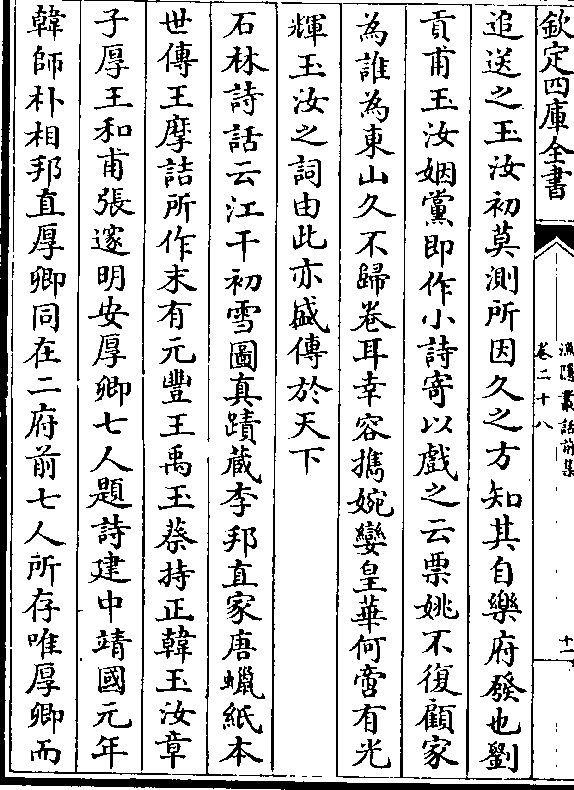 欽定四庫全書
漁隱叢話前集
卷二十八
十一
追送之玉汝初莫測所因久之方知其自樂府發也劉
貢甫玉汝姻黨即作小詩寄以戲之云票姚不復顧家
為誰為東山久不歸卷耳幸容攜婉孌皇華何啻有光
輝玉汝之詞由此亦盛傳於天下
石林詩話云江干初雪圖真蹟藏李邦直家唐蠟紙本
世傳王摩詰所作末有元豐王禹玉蔡持正韓玉汝章
子厚王和甫張邃明安厚卿七人題詩建中靖國元年
韓師朴相邦直厚卿同在二府前七人所存唯厚卿而